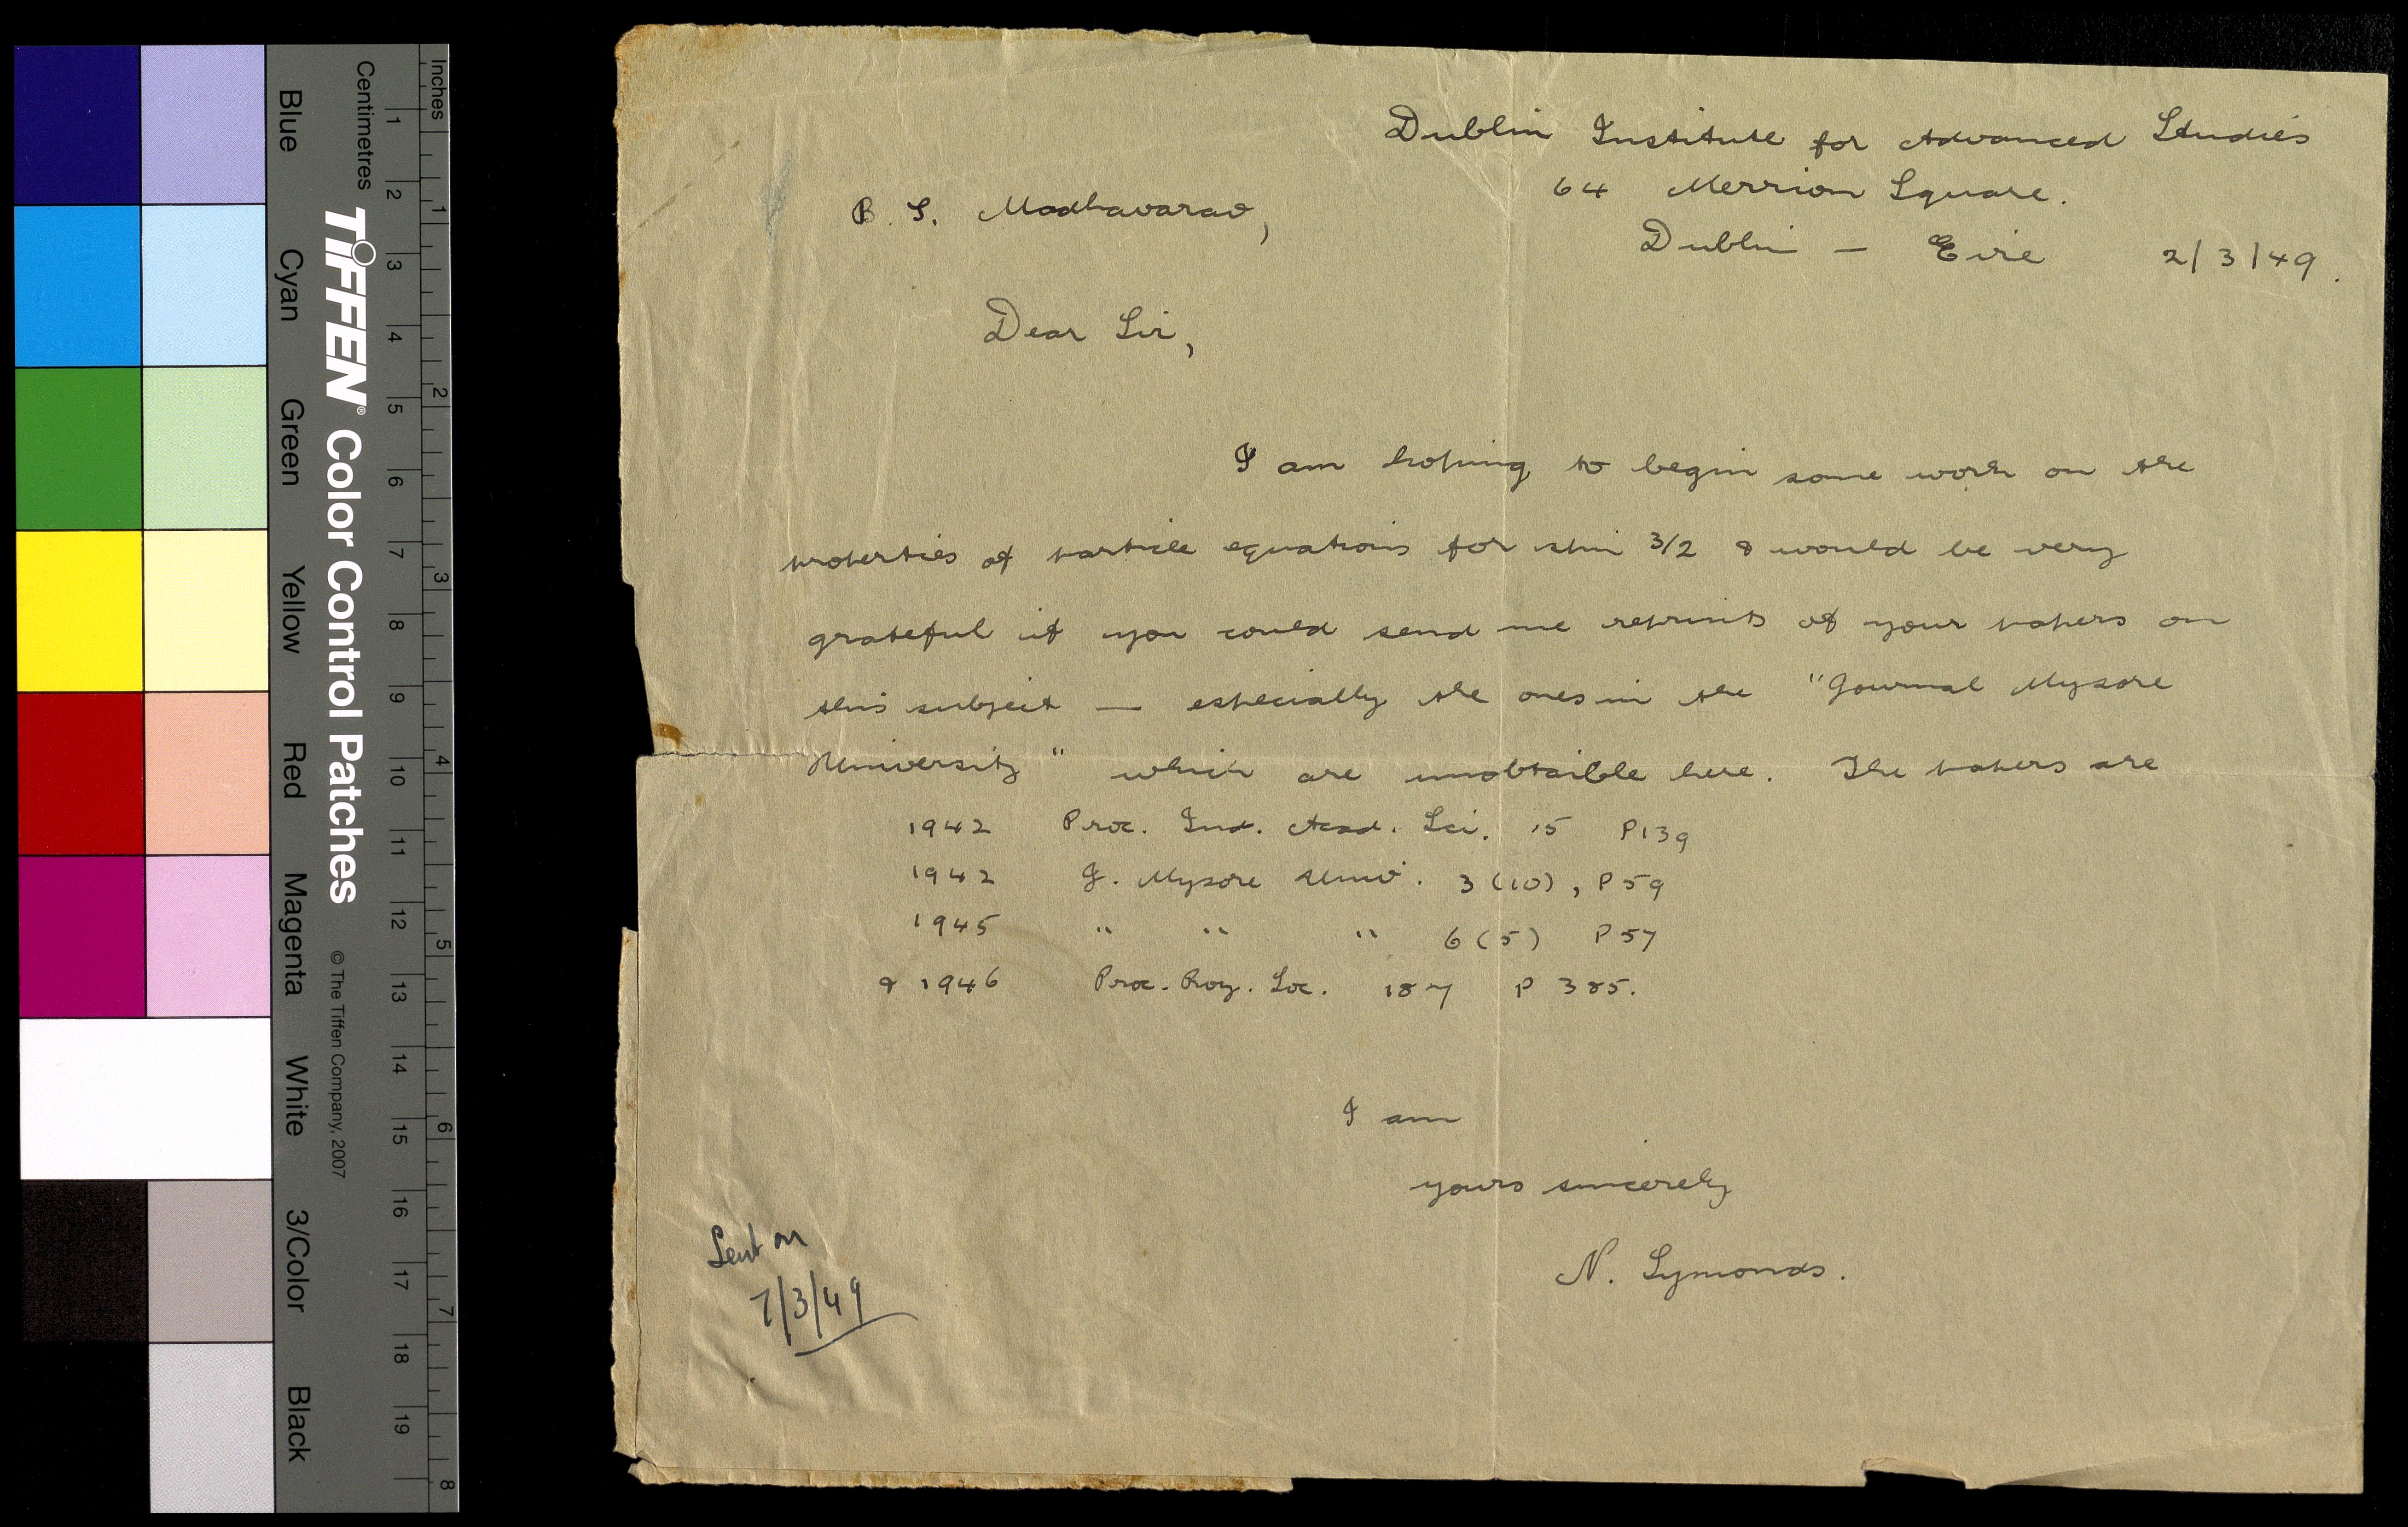 Inches
Centimetres
1 2 3 4 5 6 7 8
1 2 3 4 5 6 7 8 9 10 11 12 13 14 15 16 17 18 19
TIFFEN® Color Control Patches © The Tiffen Company, 2007
Blue Cyan Green Yellow Red Magenta White 3/Color Black
Dublin Institute for Advanced Studies
64 Merrion Square.
B. S. Madhavarao,
Dublin — Eire 2/3/49.
Dear Sir,
I am hoping to begin some work on the
properties of particle equations for spin 3/2 & would be very
grateful if you could send me reprints of your papers on
this subject — especially the ones in the "Journal Mysore
University" which are unobtaible here. The papers are
1942 Proc. Ind. Acad. Sci. 15 P139
1942 J. Mysore Univ. 3 (10), P59
1945 " " " 6 (5) P57
& 1946 Proc. Roy. Soc. 187 P 385.
I am
yours sincerely
N. Symonds.
Sent on
7/3/49